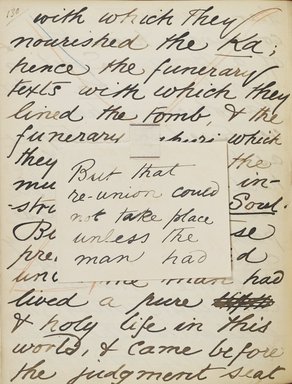 130
with which they
nourished the Ka;
hence the funerary
texts with which they
lined the tomb, & the
funerary which
they the
mu in-
-stru Soul.
Bu se
pre d
unl the man had
lived a pure
& holy life in this
world, & came before
the judgment seat
But that
re-union could
not take place
unless the
man had